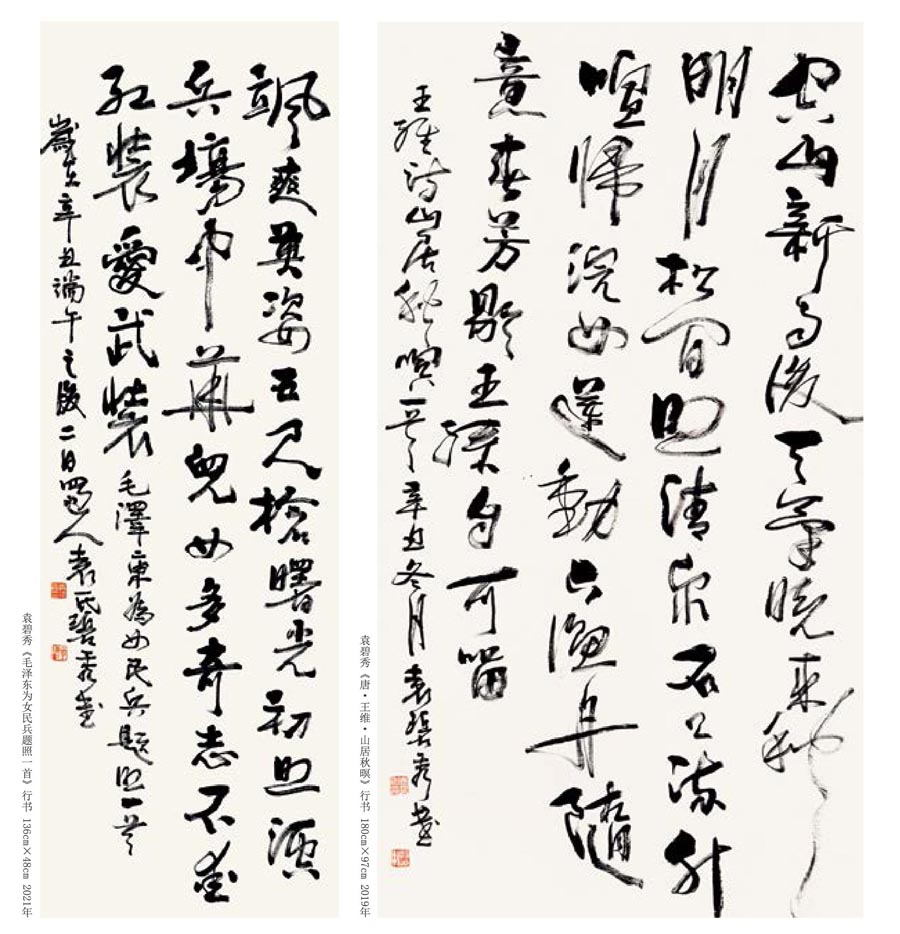 空山新雨後天氣晚来秋
明月松間照清泉石上流竹
喧歸浣女蓮動下漁舟隨
意春芳歇王孫自可留
王維詩山居秋暝一首辛丑冬月袁碧秀書
袁碧秀《唐·王维·山居秋暝》行书 180cm×97cm 2019年
颯爽英姿五尺槍曙光初照演
兵場中華兒女多奇志不愛
紅裝愛武裝毛澤東為女民兵題照一首
歲在辛丑端午之後二日蜀人袁氏碧秀書
袁碧秀《毛泽东为女民兵题照一首》行书 136cm×48cm 2021年